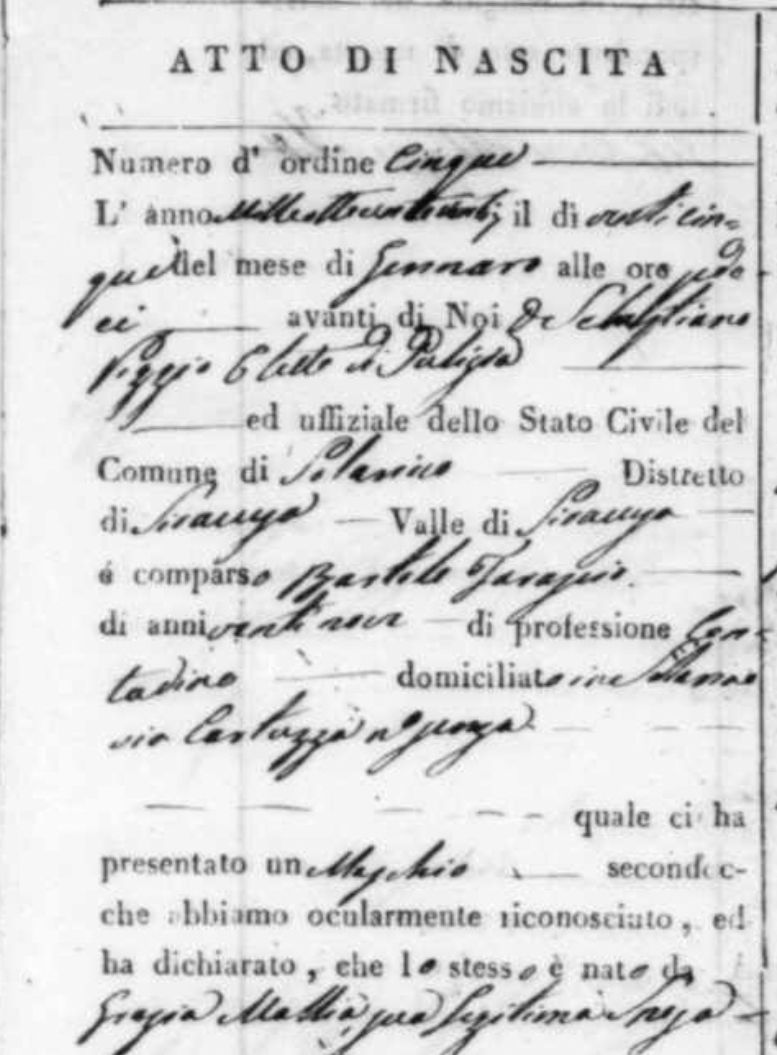 ATTO DI NASCITA
Numero d' ordine Cinque
L' anno Milleottocentoventi il di venti cin=
que del mese di Gennaro alle ore sede=
ci avanti di Noi Dn Sebastiano
Poggio Eletto di Polizia
ed uffiziale dello Stato Civile del
Comune di Solarino Distretto
di Siracusa Valle di Siracusa
é comparso Bartolo
di anni venti nove di professione Con=
tadino domiciliato in Solarino
via no senza
quale ci ha
presentato un Maschio secondoc-
che abbiamo ocularmente riconosciuto, ed
ha dichiarato, che lo stesso è nato da
Grazia Mallia sua Legitima Sposa